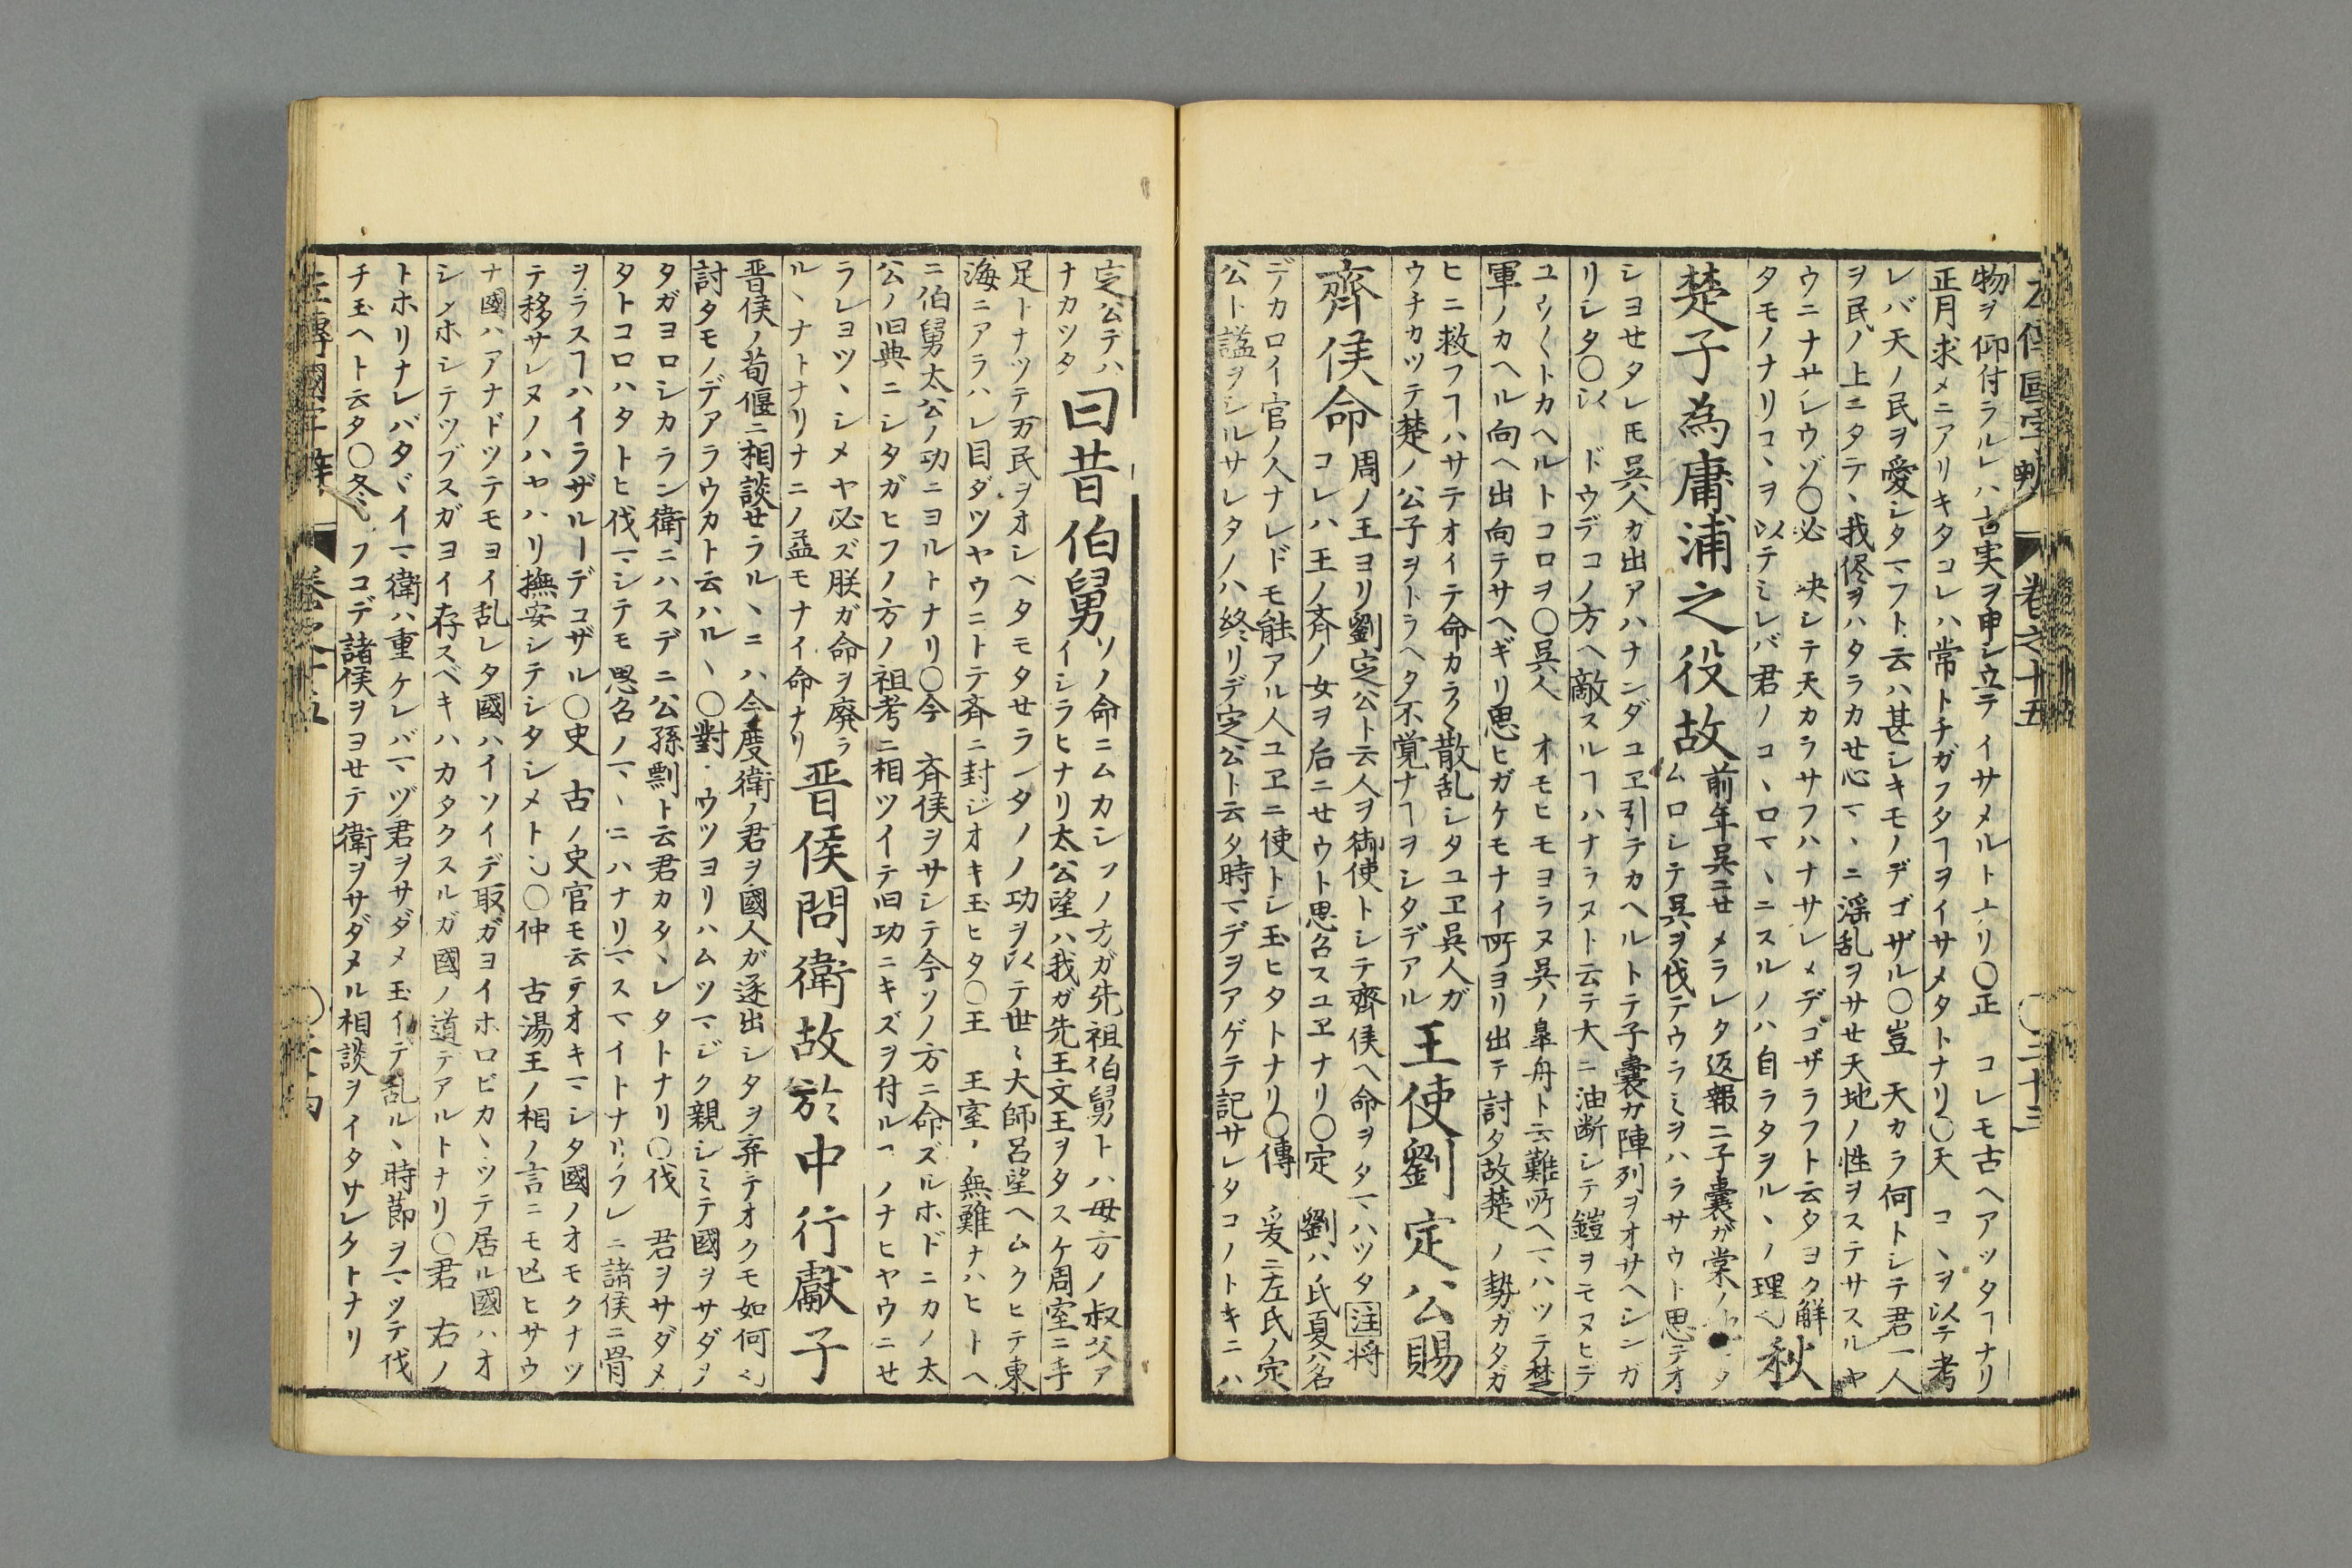 物ヲ仰付ラルレハ古実ヲ申シ立テイサメルトナリ〇正 コレモ古ヘアッタヿナリ
正月求メニアリキタコレハ常トチガフタヿヲイサメタトナリ〇天 コヽヲ以テ考
レバ天ノ民ヲ愛シタマフト云ハ甚シキモノデゴザル〇豈 天カラ何トシテ君一人
ヲ民ノ上ニタテヽ我侭ヲハタラカせ心マヽニ淫乱ヲサせ天地ノ性ヲステサスルヤ
ウニナサレウゾ〇必 决シテ天カラサフハナサレメデゴザラフト云タヨク解
タモノナリコヽヲ以テミレバ君ノコヽロマヽニスルノハ自ラタヲルヽノ理 秋
楚子為庸浦之役故 前年呉ニせメラレタ返報ニ子嚢ガ棠ノ
ムロシテ呉ヲ伐テウラミヲハラサウト思テオ
シヨせタレ𪜈呉人ガ出アハナンダユヱ引テカヘルトテ子嚢ガ陣列ヲオサヘシンガ
リシタ〇以 ドウデコノ方ヘ敵スルヿハナラヌト云テ大ニ油断シテ鎧ヲモヌヒデ
ユウ〱トカヘルトコロヲ〇呉人 オモヒモヨラヌ呉ノ皐舟ト云難所ヘマハツテ楚
軍ノカヘル向ヘ出向テサヘギリ思ヒガケモナイ所ヨリ出テ討タ故楚ノ勢ガタガ
ヒニ救フヿハサテオイテ命カラ〲散乱シタユヱ呉人ガ
ウチカツテ楚ノ公子ヲトラヘタ不覚ナヿヲシタデアル 王使劉定公賜
齊侯命 周ノ王ヨリ劉定公ト云人ヲ御使トシテ齊侯ヘ命ヲタマハツタ 注 将
コレハ王ノ斉ノ女ヲ后ニせウト思召スユヱナリ〇定 劉ハ氏夏ハ名
デカロイ官ノ人ナレドモ能アル人ユヱニ使トシ玉ヒタトナリ〇傳 爰ニ左氏ノ定
公ト諡ヲシルサレタノハ終リデ定公ト云タ時マデヲアゲテ記サレタコノトキニハ
定公デハ
ナカツタ 曰昔伯舅 ソノ命ニムカシフノ方ガ先祖伯舅トハ母方ノ叔父ア
イシラヒナリ太公望ハ我ガ先王文王ヲタスケ周室ニ手
足トナツテ万民ヲオシヘタモタせランタノノ功ヲ以テ世〻大師呂望ヘムクヒテ東
海ニアラハレ目ダツヤウニトテ斉ニ封ジオキ玉ヒタ〇王 王室ノ無難ナハヒトヘ
ニ伯舅太公ノ功ニヨルトナリ〇今 斉侯ヲサシテ今ソノ方ニ命ズルホドニカノ太
公ノ旧典ニシタガヒフノ方ノ祖考ニ相ツイテ旧功ニキズヲ付ルヿノナヒヤウニせ
ラレヨツヽシメヤ必ズ朕ガ命ヲ廃ラ
ルヽナトナリナニノ益モナイ命ナリ 晋侯問衛故於中行獻子
晋侯ノ荀偃ニ相談せラルヽニハ今度衛ノ君ヲ國人ガ逐出シタヲ弃テオクモ如何
討タモノデアラウカト云ハルヽ〇對 ウツヨリハムツマジク親シミテ國ヲサダメ
タガヨロシカラン衛ニハスデニ公孫剽ト云君カタヽレタトナリ〇伐 君ヲサダメ
タトコロハタトヒ伐マシテモ思召ノマヽニハナリマスマイトナリフレニ諸侯ニ骨
ヲラスヿハイラザルーデゴザル〇史 古ノ史官モ云テオキマシタ國ノオモクナツ
テ移サレヌノハヤハリ撫安シテシタシメト〇仲 古湯王ノ相ノ言ニモ凶ヒサウ
ナ國ハアナドツテモヨイ乱レタ國ハイソイデ取ガヨイホロビカヽツテ居ル國ハオ
シノホシテツブスガヨイ存スベキハカタクスルガ國ノ道デアルトナリ〇君 右ノ
トホリナレバタヾイマ衛ハ重ケレバマヅ君ヲサダメ玉イテ乱ルヽ時節ヲマツテ伐
チ玉ヘト云タ〇冬 フコデ諸侯ヲヨせテ衛ヲサダメル相談ヲイタサレタトナリ